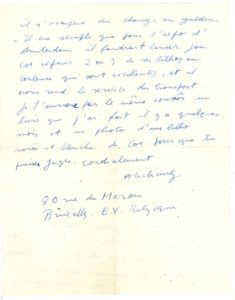 il s'occupera du change en gulden.
- Il me semble que pour l'expo d'
Amsterdam il faudrait laisser
2 ou 3 de ses lithos en
couleurs qui sont excellentes, et il
nous rend le service du transport.
je t'envoie par le même courrier un
livre que j'ai fait il y a quelques
mois et un photo d'une litho
noire et blanche de Cox. pour que tu
puisses juger. cordialement
80 rue du Marais
Bruxelles. Belgique